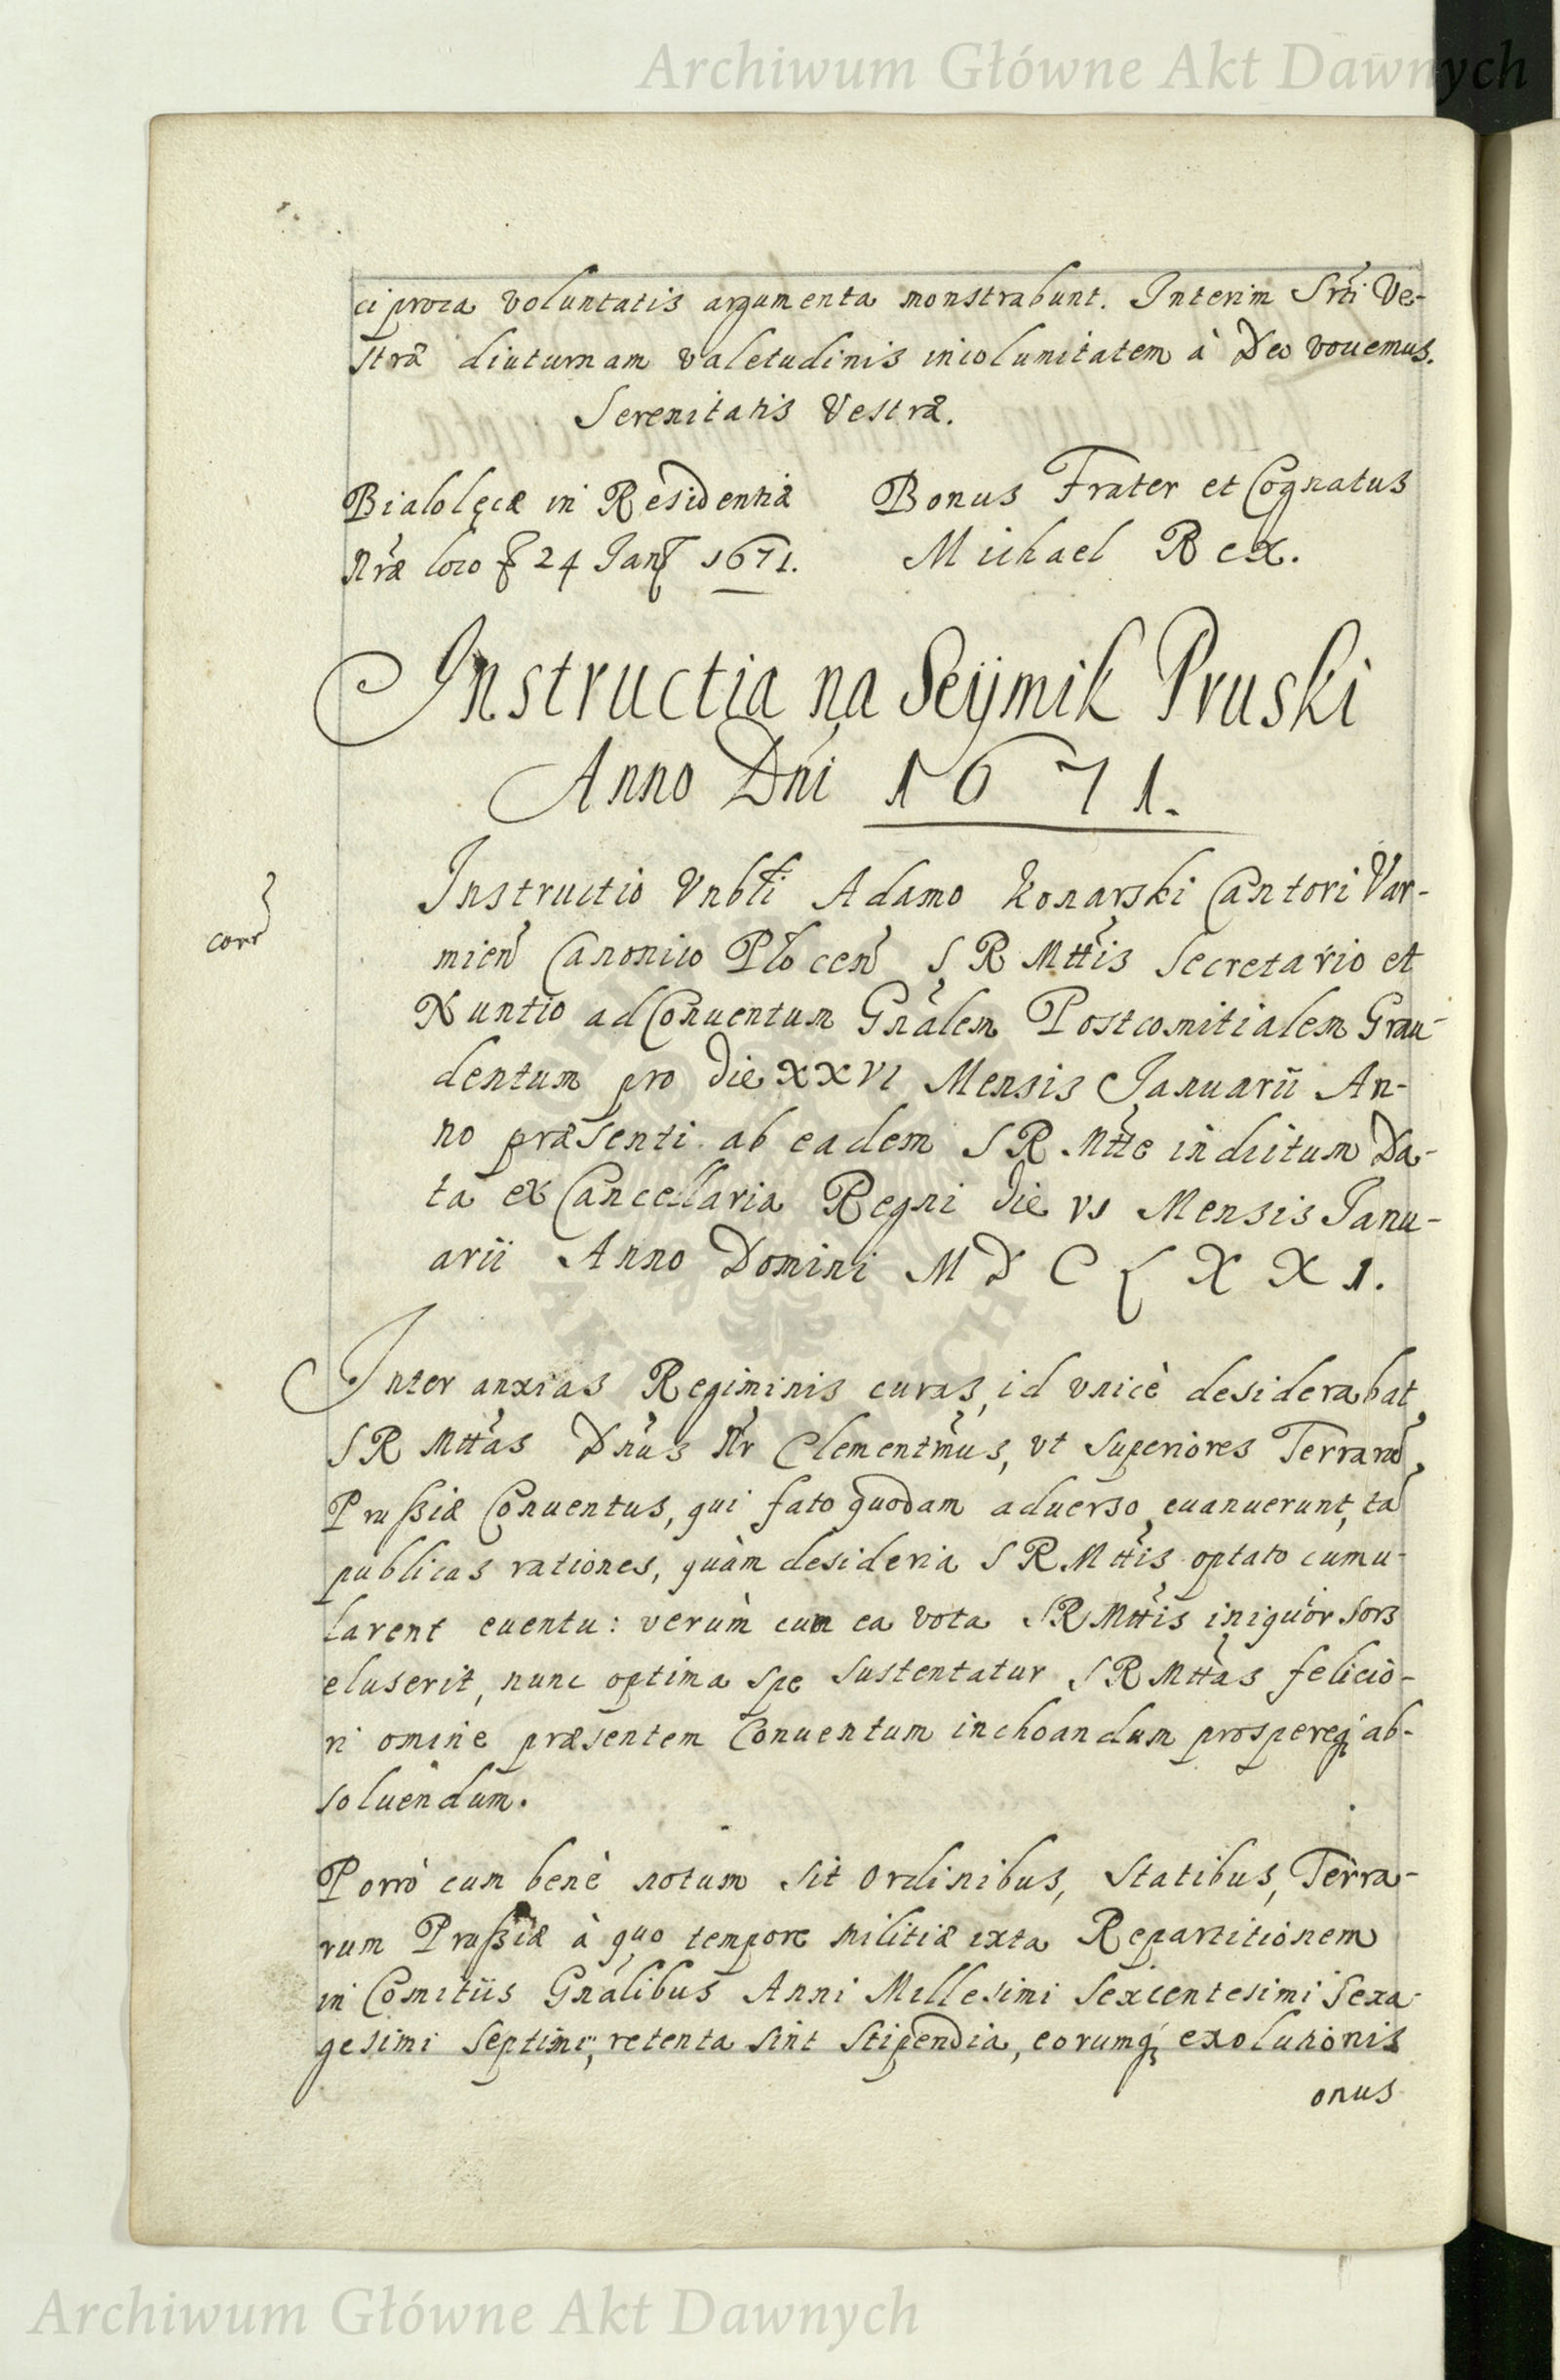 Archiwum Główne Akt Dawnych
ciproca voluntatis argumenta monstrabunt. Interim Srti Ve-
stræ diuturnam valetudinis incolumitatem à Deo vouemus.
Serenitatis Vestræ.
Bialolęcæ in Residentiâ Bonus Frater et Cognatus
Nræ loco 24 Jan 1671. Michael Rex.
Instructia na Seÿmik Pruski
Anno Dni 1671.
Instructio Vnbli Adamo Konarski Cantori Var-
corr
mien Canonico Plocen S R Mttis Secretario et
Nuntio ad Conuentum Gnalem Postcomitialem Grau-
dentum pro die XXVI Mensis Januarii An-
no præsenti ab eadem S R Mtte indictum Da-
ta ex Cancellaria Regni die VI Mensis Janu-
arii Anno Domini M D C L X X I.
Inter anxias Regiminis curas, id vnicè desiderabat
S R Mttas Dnus Nr Clementmus, vt superiores Terrarũ
Prußiæ Conuentus, qui fato quodam aduerso euanuerunt, tã
publicas rationes, quàm desideria S R Mttis optato cumu-
larent euentu: verùm cum ea vota S R Mttis iniquior sors
eluserit, nunc optima spe sustentatur S R Mttas felicio-
ri omine præsentem Conuentum inchoandum prospereq ab-
soluendum.
Porrò cum benè notum sit Ordinibus, Statibus, Terra-
rum Prußiæ à quo tempore militiæ ixta Repartitionem
in Comitiis Gnalibus Anni Millesimi Sexcentesimi Sexa-
gesimi Septimi, retenta sint stipendia, eorumq exolutionis
onus
Archiwum Główne Akt Dawnych